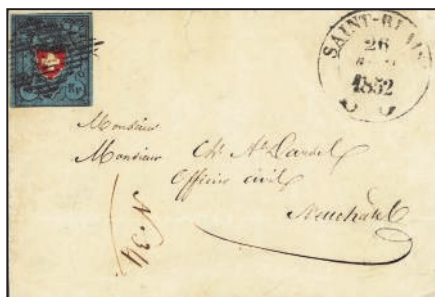 SAINT-BLAISE
26
1852
Rp
Monsieur
Monsieur Ch^s A^te
Officier civil
Neuchâtel
N.34